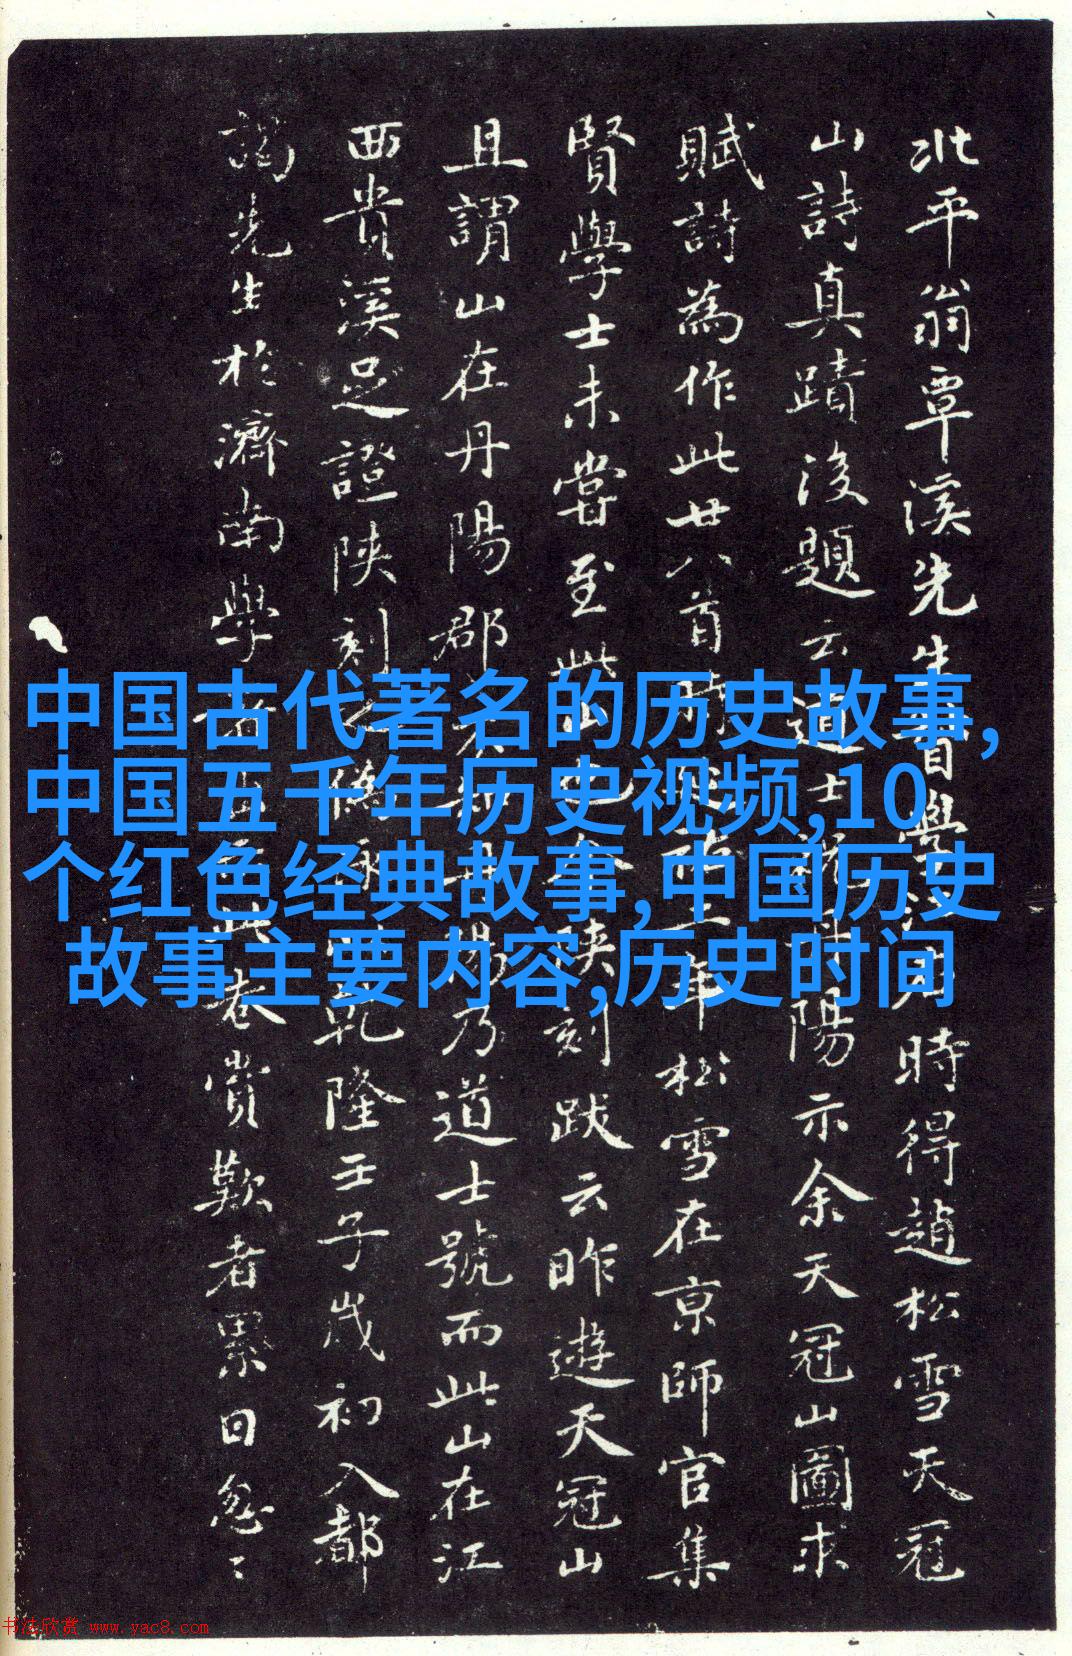 北平翁覃溪先生督學時得趙松雪天冠
山詩真蹟後題云道士祝丹陽示余天冠山圖求
賦詩為作此廿八首年松雪在京師官集
賢學士未嘗至此山也今陝刻跋云昨遊天冠山
且謂山在丹陽郡丹陽乃道士號而此山在江
西貴溪足證陝刻之偽乾隆壬子歲初入都
謁先生於濟南學此卷賞歎者累日忽〻
中国古代著名的历史故事,
中国五千年历史视频,10
个红色经典故事,中国历史
故事主要内容,历史时间
书法欣赏 www.yac8.com